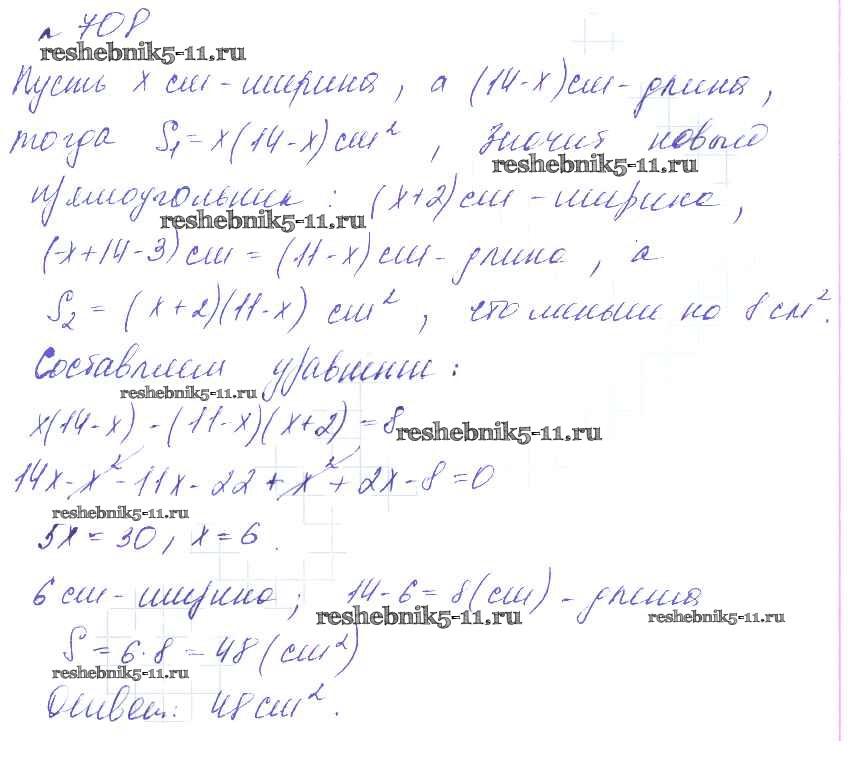 № 708
reshebnik5-11.ru
Пусть x см - ширина, а (14-x) см - длина,
тогда S₁ = x(14-x) см², значит новый
reshebnik5-11.ru
прямоугольник: (x+2) см - ширина,
reshebnik5-11.ru
(-x+14-3) см = (11-x) см - длина, а
S₂ = (x+2)(11-x) см², что меньше на 8 см².
Составляем уравнение:
reshebnik5-11.ru
x(14-x) - (11-x)(x+2) = 8
reshebnik5-11.ru
14x - x² - 11x - 22 + x² + 2x - 8 = 0
reshebnik5-11.ru
5x = 30, x = 6.
6 см - ширина; 14-6 = 8 (см) - длина
reshebnik5-11.ru reshebnik5-11.ru
S = 6·8 = 48 (см²)
reshebnik5-11.ru
Ответ: 48 см².